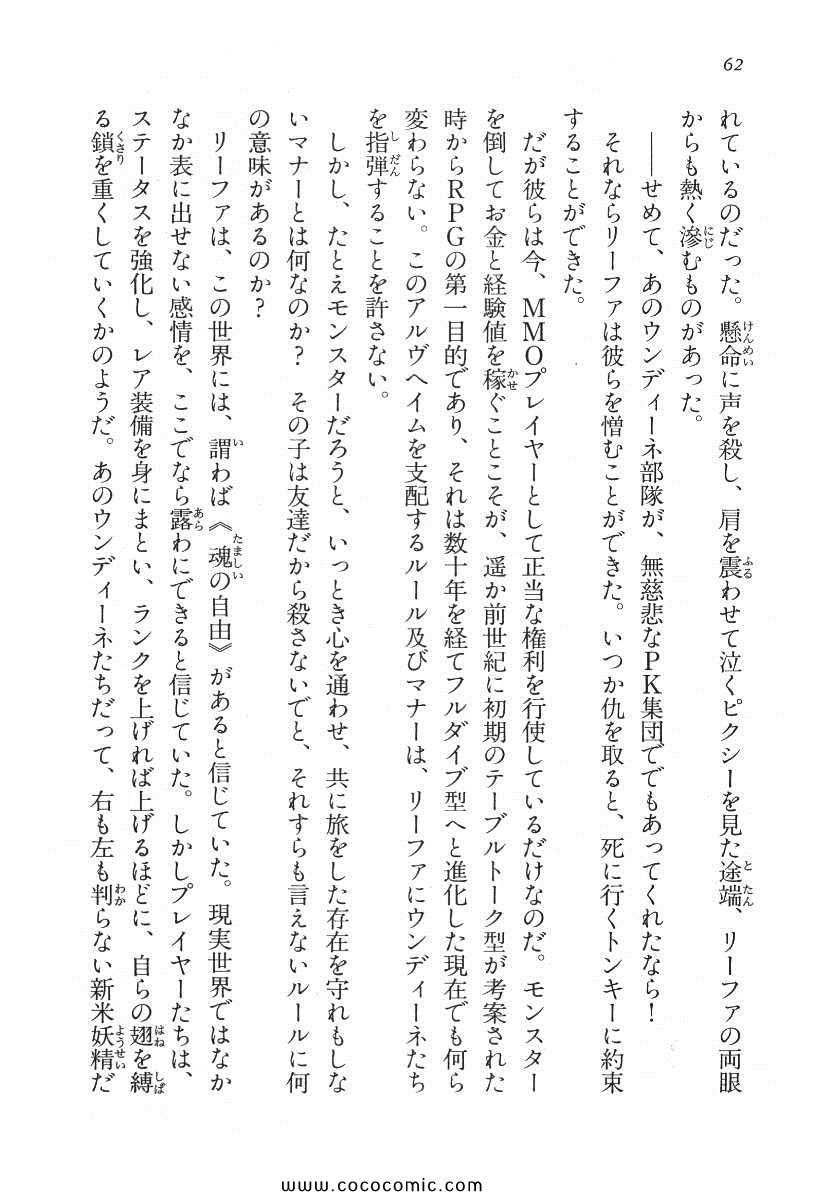 62
れているのだった。懸命に声を殺し、肩を震わせて泣くピクシーを見た途端、リーファの両眼
からも熱く滲むものがあった。
――せめて、あのウンディーネ部隊が、無慈悲なPK集団ででもあってくれたなら！
それならリーファは彼らを憎むことができた。いつか仇を取ると、死に行くトンキーに約束
することができた。
だが彼らは今、MMOプレイヤーとして正当な権利を行使しているだけなのだ。モンスター
を倒してお金と経験値を稼ぐことこそが、遥か前世紀に初期のテーブルトーク型が考案された
時からRPGの第一目的であり、それは数十年を経てフルダイブ型へと進化した現在でも何ら
変わらない。このアルヴヘイムを支配するルール及びマナーは、リーファにウンディーネたち
を指弾することを許さない。
しかし、たとえモンスターだろうと、いっとき心を通わせ、共に旅をした存在を守れもしな
いマナーとは何なのか？　その子は友達だから殺さないでと、それすらも言えないルールに何
の意味があるのか？
リーファは、この世界には、謂わば《魂の自由》があると信じていた。現実世界ではなか
なか表に出せない感情を、ここでなら露わにできると信じていた。しかしプレイヤーたちは、
ステータスを強化し、レア装備を身にまとい、ランクを上げれば上げるほどに、自らの翅を縛
る鎖を重くしていくかのようだ。あのウンディーネたちだって、右も左も判らない新米妖精だ
www.cococomic.com